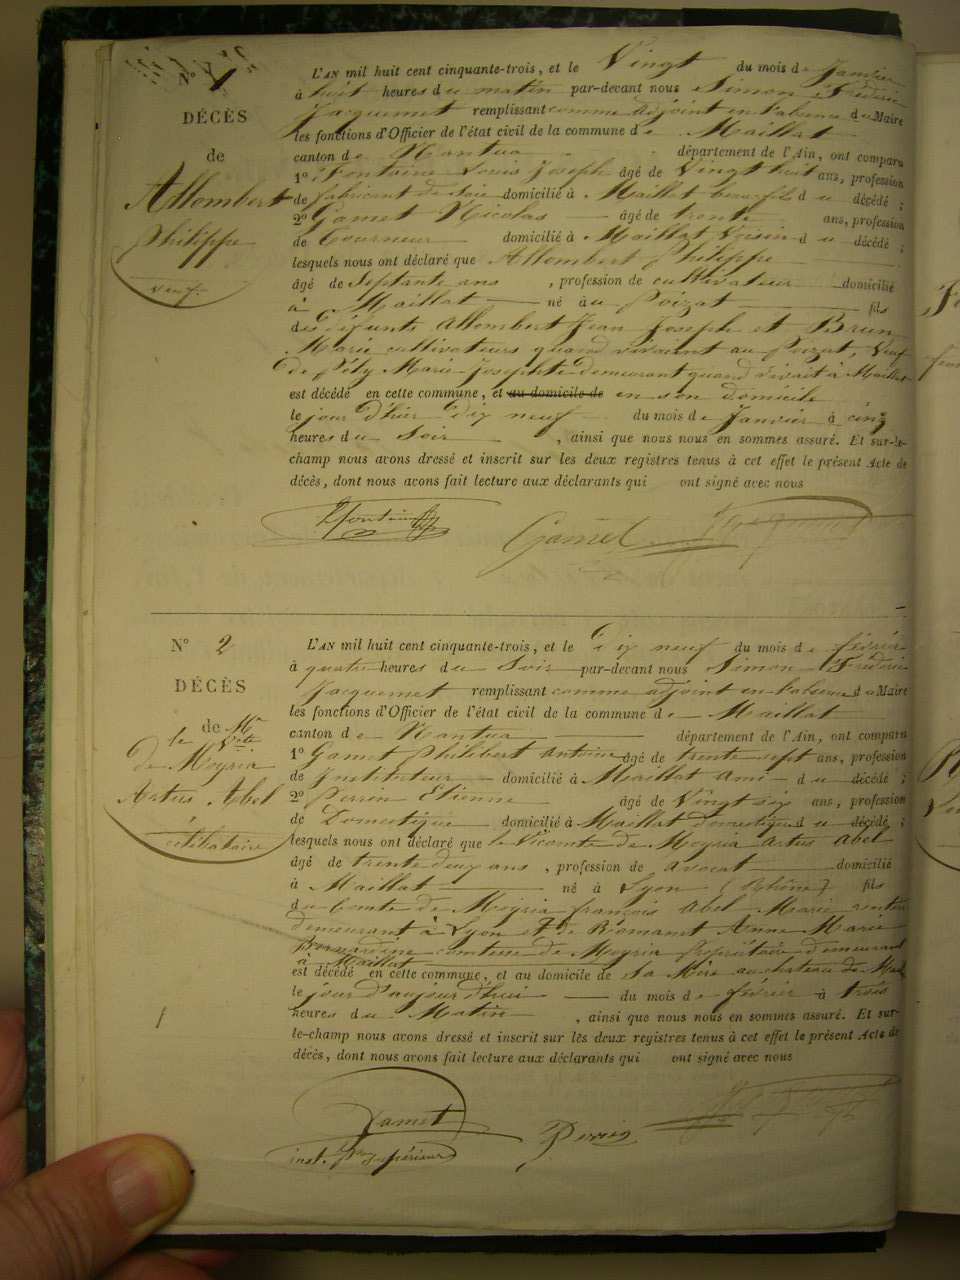 N° 1
DÉCÈS
de
Allombert
Philippe
veuf.
L'AN mil huit cent cinquante-trois, et le Vingt du mois de Janvier
à huit heures du matin par-devant nous Simon Frédéric
Jacquemet remplissant comme adjoint en l'absence du Maire
les fonctions d'Officier de l'état civil de la commune de Maillat
canton de Nantua département de l'Ain, ont comparu
1° Fontaine Louis Joseph âgé de Vingt huit ans, profession
de fabricant de soie domicilié à Maillat beau fils du décédé ;
2° Gamet Nicolas âgé de trente ans, profession
de Tourneur domicilié à Maillat Voisin du décédé ;
lesquels nous ont déclaré que Allombert Philippe
âgé de Septante ans , profession de cultivateur domicilié
à Maillat né au Poizat fils
des défunts Allombert Jean Joseph et Brun
Marie cultivateurs quand vivaient au Poizat, Veuf
de Pély Marie Josephte demeurant quand vivait à Maillat
est décédé en cette commune, et au domicile de en son domicile
le jour d'hier dix neuf du mois de Janvier à cinq
heures du Soir , ainsi que nous nous en sommes assuré. Et sur-le-
champ nous avons dressé et inscrit sur les deux registres tenus à cet effet le présent Acte de
décès, dont nous avons fait lecture aux déclarants qui ont signé avec nous
Gamet
N° 2
DÉCÈS
de Mr
le Vte
de Moyria
Artus Abel
célibataire
L'AN mil huit cent cinquante-trois, et le dix neuf du mois de février
à quatre heures du Soir par-devant nous Simon Frédéric
Jacquemet remplissant comme adjoint en l'absence du Maire
les fonctions d'Officier de l'état civil de la commune de Maillat
canton de Nantua département de l'Ain, ont comparu
1° Gamet Philibert Antoine âgé de trente sept ans, profession
de Instituteur domicilié à Maillat Ami du décédé ;
2° Perrin Etienne âgé de Vingt six ans, profession
de Domestique domicilié à Maillat domestique du décédé ;
lesquels nous ont déclaré que le Vicomte de Moyria Artus Abel
âgé de trente deux ans , profession de avocat domicilié
à Maillat né à Lyon (Rhône) fils
du Comte de Moyria françois Abel Marie rentier
demeurant à Lyon et de Riomanet Anne Marie
Bernardine comtesse de Moyria Propriétaire demeurant
à Maillat
est décédé en cette commune, et au domicile de sa Mère au chateau de
le jour d'aujourd'hui du mois de février à trois
heures du Matin , ainsi que nous nous en sommes assuré. Et sur-
le-champ nous avons dressé et inscrit sur les deux registres tenus à cet effet le présent Acte de
décès, dont nous avons fait lecture aux déclarants qui ont signé avec nous
Gamet
Perrin
inst. supérieur